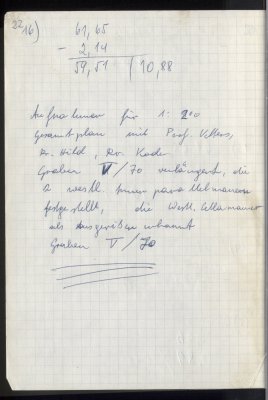 32
16)
61,65
- 2,14
59,51 | 10,88
Aufnahmen für 1:200
Gesamtplan mit Prof. Vetters,
Dr. Hild, Dr. Kode
Graben V/70 verlängert, die
2 westl. Innenparallelmauern
festgestellt, die Westl. Cellamauer
als Ausgerissen erkannt
Graben V/70